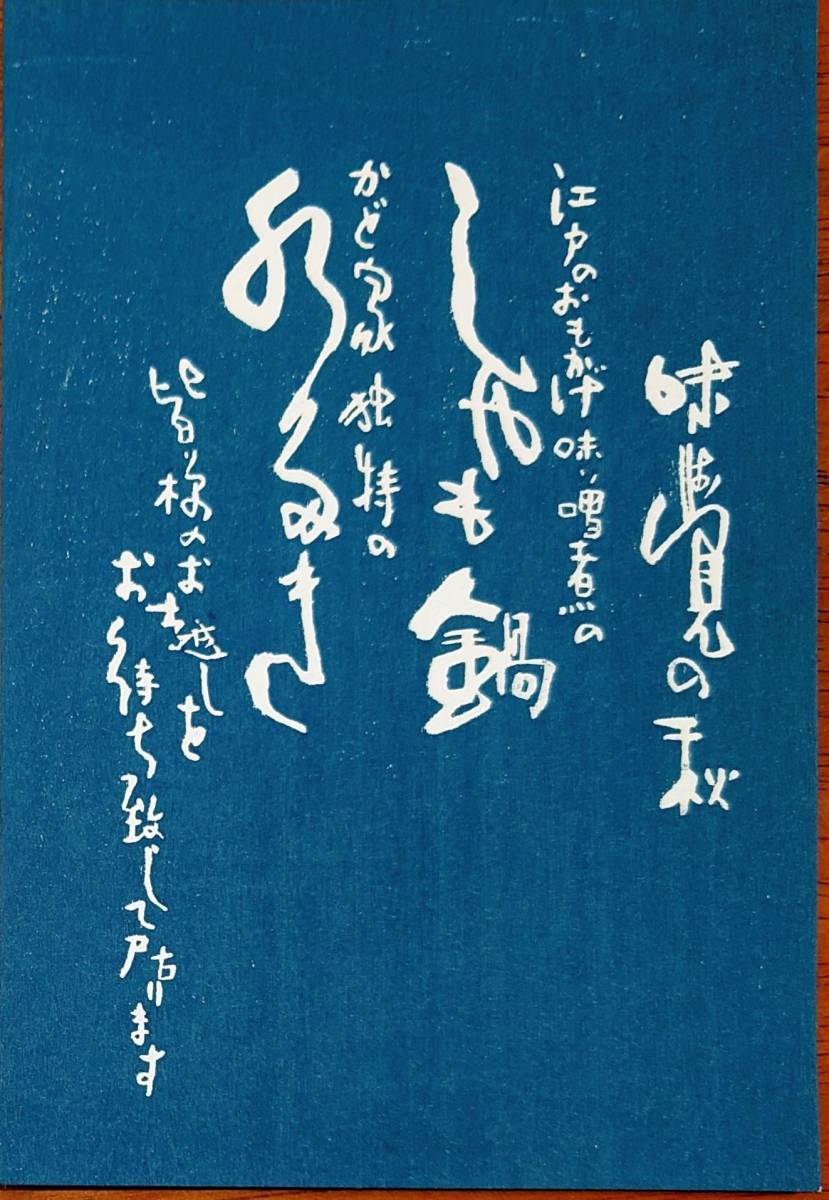 味覚の秋
江戸のおもかげ味噌煮の
しゃも鍋
かど家独特の
水多き
皆様のお越しを
お待ち致して居ります